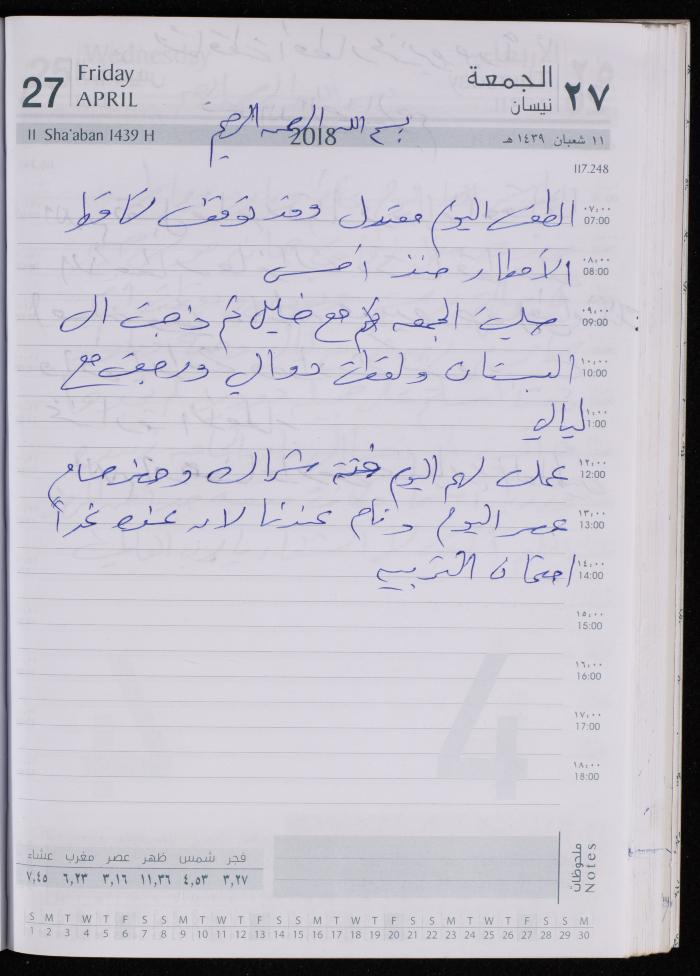 27 Friday APRIL
الجمعة نيسان ٢٧
11 Sha'aban 1439 H
2018
١١ شعبان ١٤٣٩ هـ
بسم الله الرحمن الرحيم
117.248
٠٧:٠٠ 07:00 الطقس اليوم معتدل وقد توقف تساقط
٠٨:٠٠ 08:00 الأمطار منذ أمس
٠٩:٠٠ 09:00 صليت الجمعه مع خليل ثم ذهبت الى
١٠:٠٠ 10:00 البستان ولقطت دوالي ورجعت مع
١١:٠٠ 11:00 ليالي
١٢:٠٠ 12:00 عملت لهم اليوم فتة
١٣:٠٠ 13:00 عصر اليوم ونام عندنا لانه عنده غداً
١٤:٠٠ 14:00 امتحان التربيه
١٥:٠٠ 15:00
١٦:٠٠ 16:00
١٧:٠٠ 17:00
١٨:٠٠ 18:00
4
ملحوظات Notes
فجر شمس ظهر عصر مغرب عشاء
٣,٢٧ ٤,٥٣ ١١,٣٦ ٣,١٦ ٦,٢٣ ٧,٤٥
S M T W T F S S M T W T F S S M T W T F S S M T W T F S S M
1 2 3 4 5 6 7 8 9 10 11 12 13 14 15 16 17 18 19 20 21 22 23 24 25 26 27 28 29 30